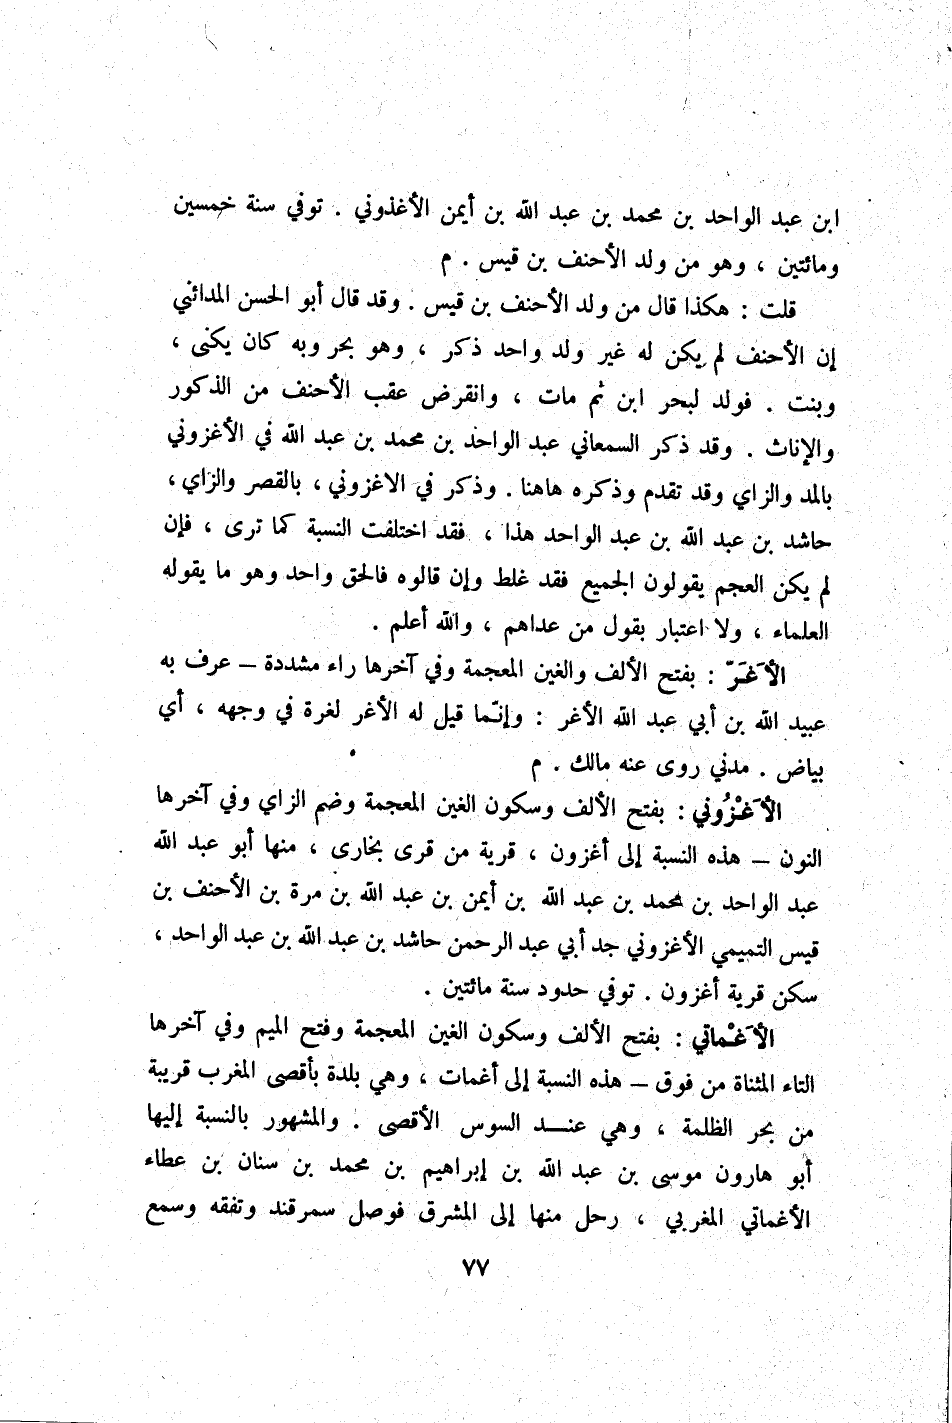 ابن عبد الواحد بن محمد بن عبد الله بن أيمن الأغذوني . توفي سنة خمسين
ومائتين ، وهو من ولد الأحنف بن قيس . م
قلت : هكذا قال من ولد الأحنف بن قيس . وقد قال أبو الحسن المدائني
إن الأحنف لم يكن له غير ولد واحد ذكر ، وهو بحر وبه كان يكنى ،
وبنت . فولد لبحر ابن ثم مات ، وانقرض عقب الأحنف من الذكور
والإناث . وقد ذكر السمعاني عبد الواحد بن محمد بن عبد الله في الأغزوني
بالمد والزاي وقد تقدم وذكره هاهنا . وذكر في الاغزوني ، بالقصر والزاي ،
حاشد بن عبد الله بن عبد الواحد هذا ، فقد اختلفت النسبة كما ترى ، فإن
لم يكن العجم يقولون الجميع فقد غلط وإن قالوه فالحق واحد وهو ما يقوله
العلماء ، ولا اعتبار بقول من عداهم ، والله أعلم .
الأَغَرّ : بفتح الألف والغين المعجمة وفي آخرها راء مشددة – عرف به
عبيد الله بن أبي عبد الله الأغر : وإنّما قيل له الأغر لغرة في وجهه ، أي
بياض . مدني روى عنه مالك . م
الأَغْزُوني : بفتح الألف وسكون الغين المعجمة وضم الزاي وفي آخرها
النون – هذه النسبة إلى أغزون ، قرية من قرى بخارى ، منها أبو عبد الله
عبد الواحد بن محمد بن عبد الله بن أيمن بن عبد الله بن مرة بن الأحنف بن
قيس التميمي الأغزوني جد أبي عبد الرحمن حاشد بن عبد الله بن عبد الواحد ،
سكن قرية أغزون . توفي حدود سنة مائتين .
الأَغْماتي : بفتح الألف وسكون الغين المعجمة وفتح الميم وفي آخرها
التاء المثناة من فوق – هذه النسبة إلى أغمات ، وهي بلدة بأقصى المغرب قريبة
من بحر الظلمة ، وهي عنـد السوس الأقصى . والمشهور بالنسبة إليها
أبو هارون موسى بن عبد الله بن إبراهيم بن محمد بن سنان بن عطاء
الأغماتي المغربي ، رحل منها إلى المشرق فوصل سمرقند وتفقه وسمع
٧٧